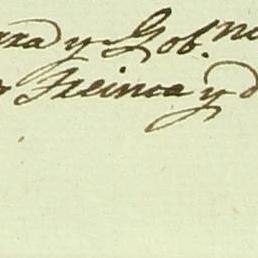 rra y Gob.no
Treinta y d